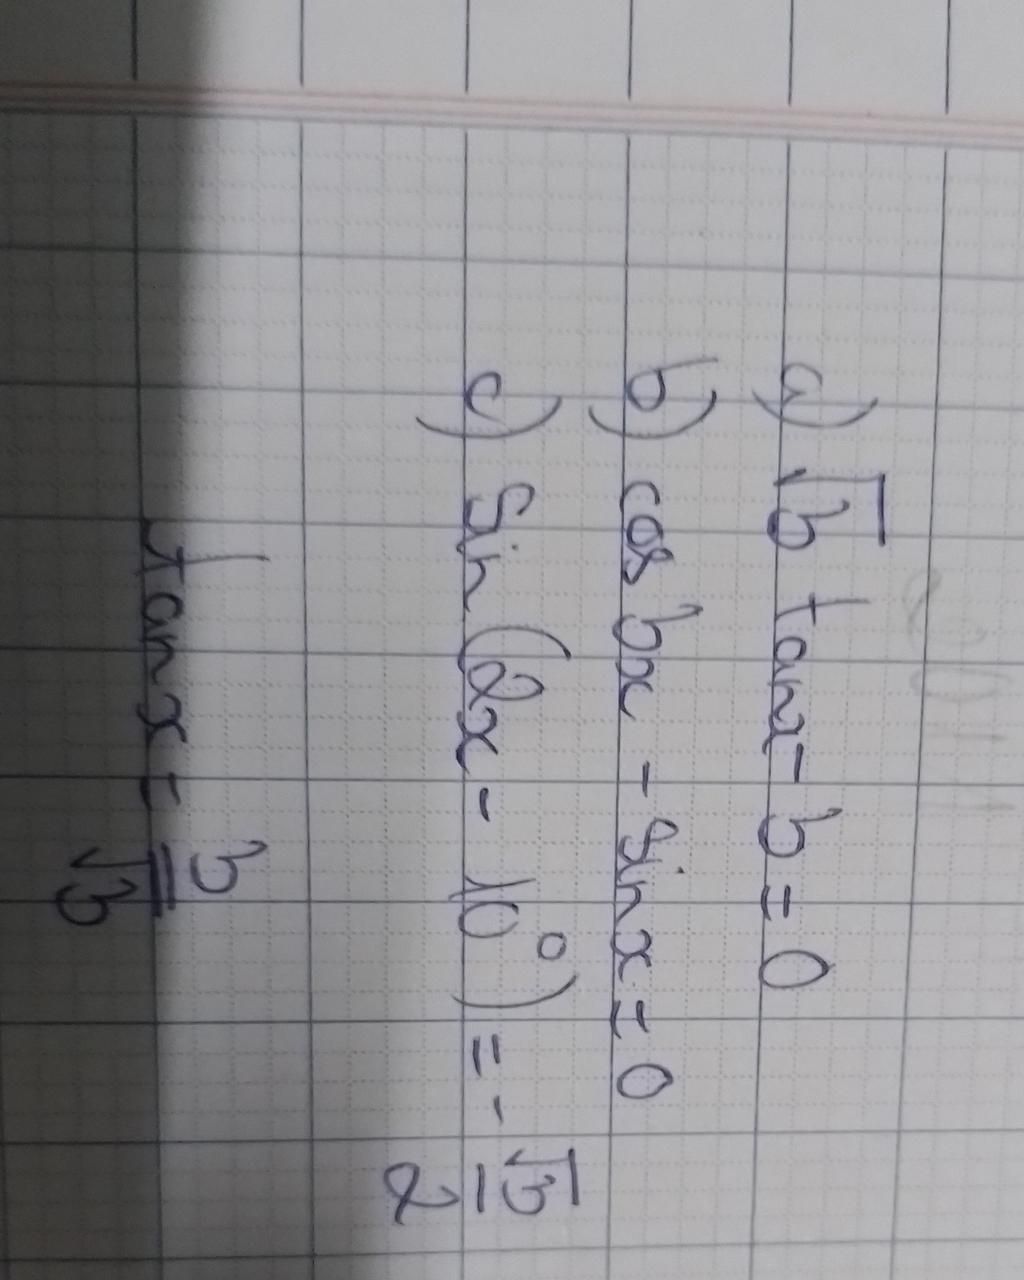 a) √3 tanx - 3 = 0
b) cos 3x - sin x = 0
c) Sin (2x - 10°) = - √3/2
tan x = 3/√3